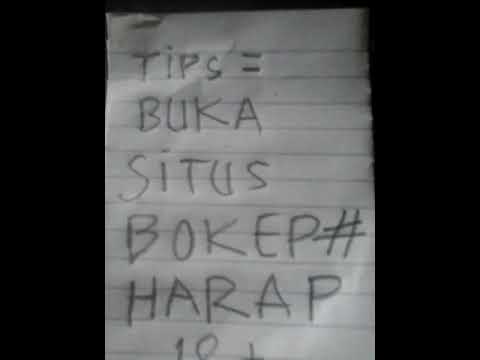 TiPS =
BUKA
SiTUS
BOKEP#
HARAP
18 +